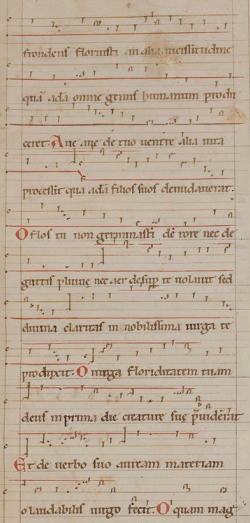 frondens floruisti in alia vicissitudine
quā adā omne genus humanum produ
ceret. Aue aue de tuo uentre alia uita
processit qua adā filios suos denudauerat.
O flos tu non germinasti de rore nec de
guttis pluuie nec aer desup te uolauit sed
diuina claritas in nobilissima uirga te
produxit. O uirga floriditatem tuam
deus in prima die creature sue p̄uiderat
Et de uerbo suo auream materiam
o laudabilis uirgo fecit. O quam mag